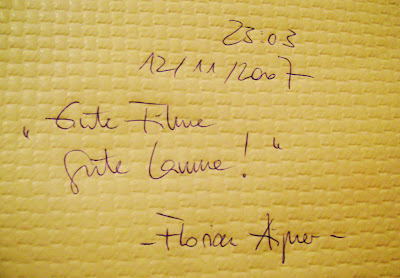 23:03
12/11/2007
"Gute Filme
gute Laune!"
- Florian Aigner -